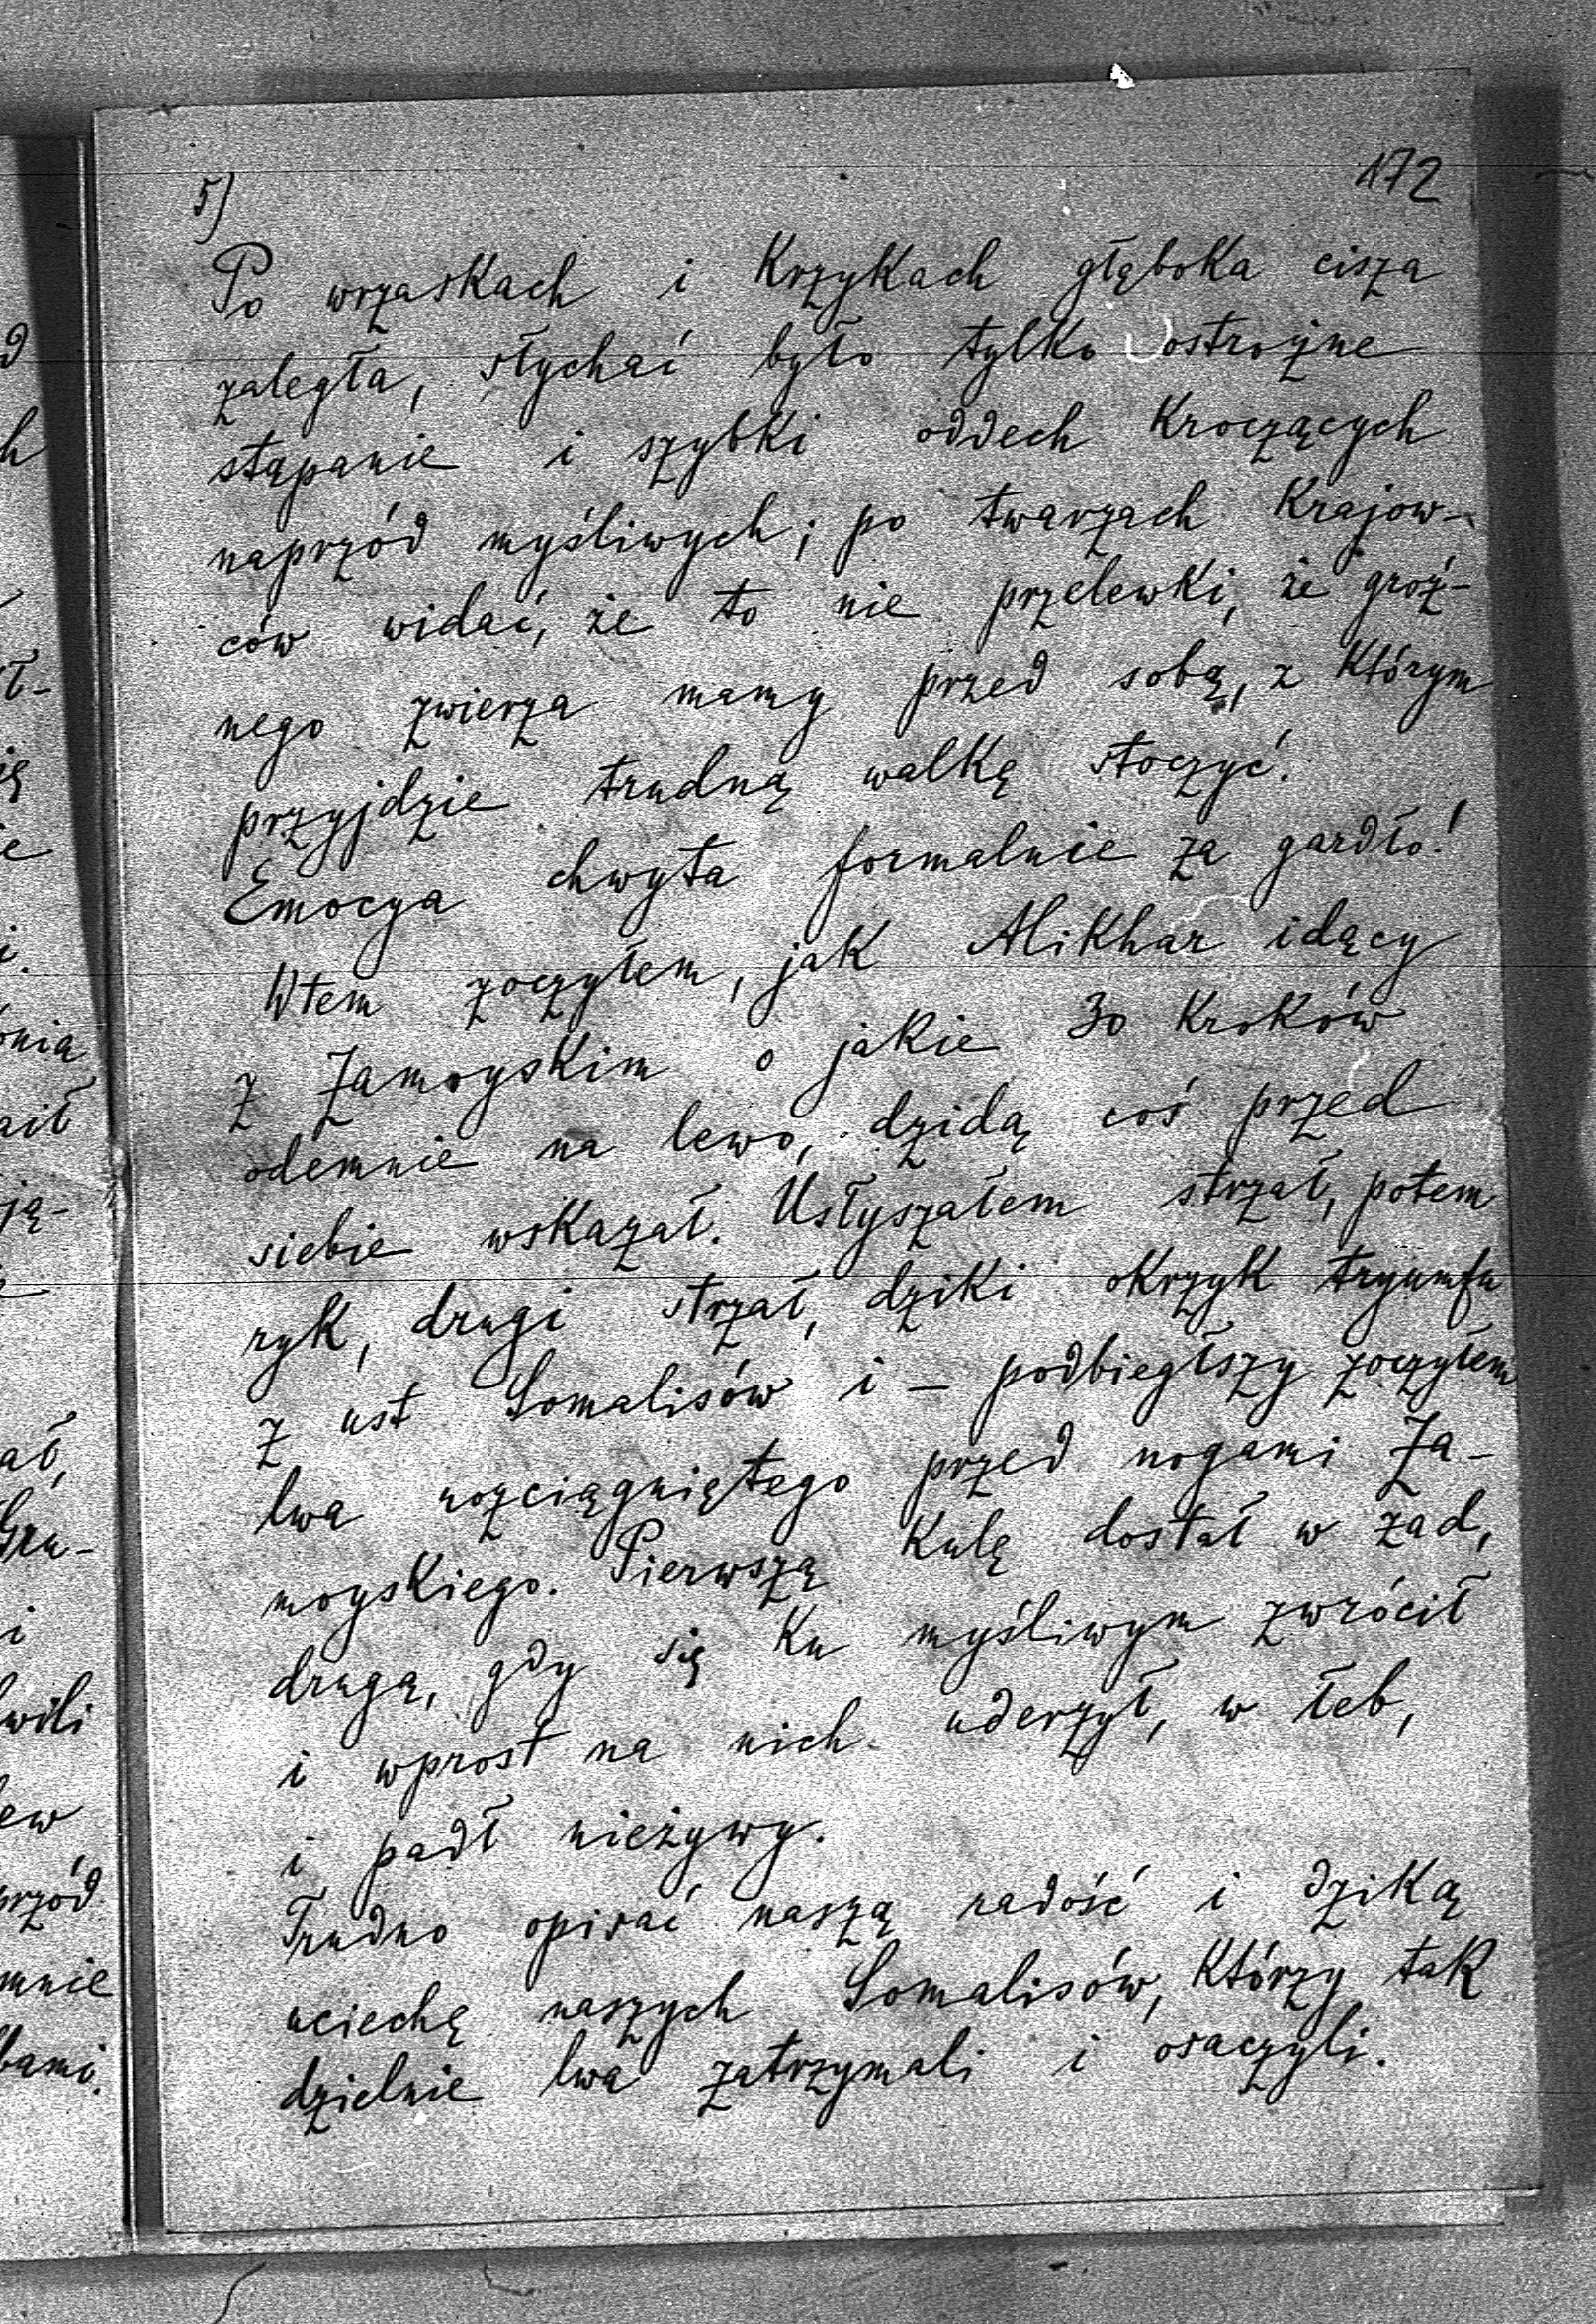 5)
172
Po wrzaskach i krzykach głęboka cisza
zaległa, słychać było tylko ostrożne
stąpanie i szybki oddech kroczących
naprzód myśliwych; po twarzach krajow-
ców widać, że to nie przelewki, że groź-
nego zwierza mamy przed sobą, z którym
przyjdzie trudną walkę stoczyć.
Emocya chwyta formalnie za gardło!
Wtem zoczyłem, jak Alikhar idący
z Zamoyskim o jakie 30 kroków
odemnie na lewo, dzidą coś przed
siebie wskazał. Usłyszałem strzał, potem
ryk, drugi strzał, dziki okrzyk tryumfu
z ust Somalisów i – podbiegłszy zoczyłem
lwa rozciągniętego przed nogami Za-
moyskiego. Pierwszą kulę dostał w zad,
drugą, gdy się ku myśliwym zwrócił
i wprost na nich uderzył, w łeb,
i padł nieżywy.
Trudno opisać naszą radość i dziką
uciechę naszych Somalisów, którzy tak
dzielnie lwa zatrzymali i osaczyli.